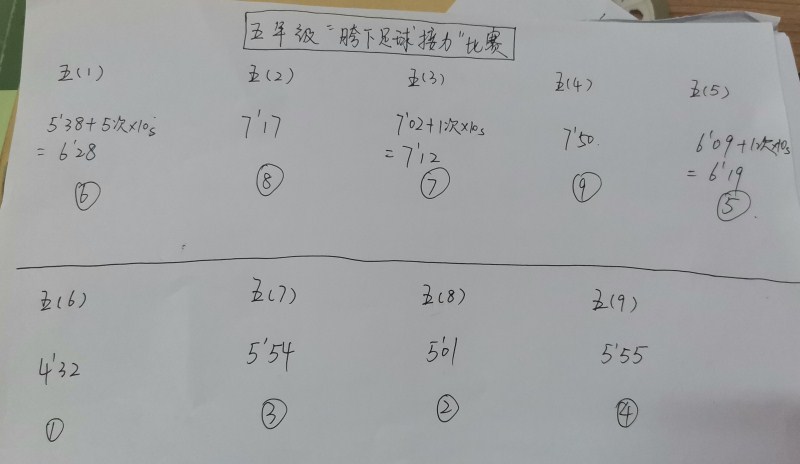 五年级"胯下足球接力"比赛
五(1)
5'38+5次×10s
=6'28
⑥
五(2)
7'17
⑧
五(3)
7'02+1次×10s
=7'12
⑦
五(4)
7'50
⑨
五(5)
6'09+1次×10s
=6'19
⑤
五(6)
4'32
①
五(7)
5'54
③
五(8)
5'01
②
五(9)
5'55
④